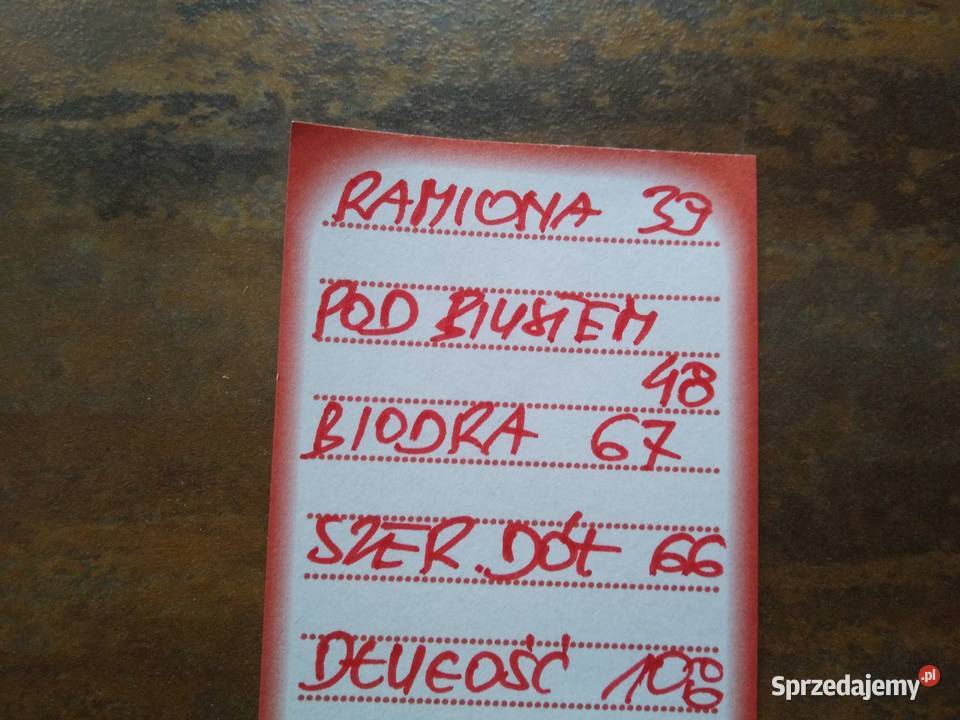 RAMIONA 39
POD BIUSTEM
48
BIODRA 67
SZER. DÓŁ 66
DŁUGOŚĆ 100
Sprzedajemy.pl